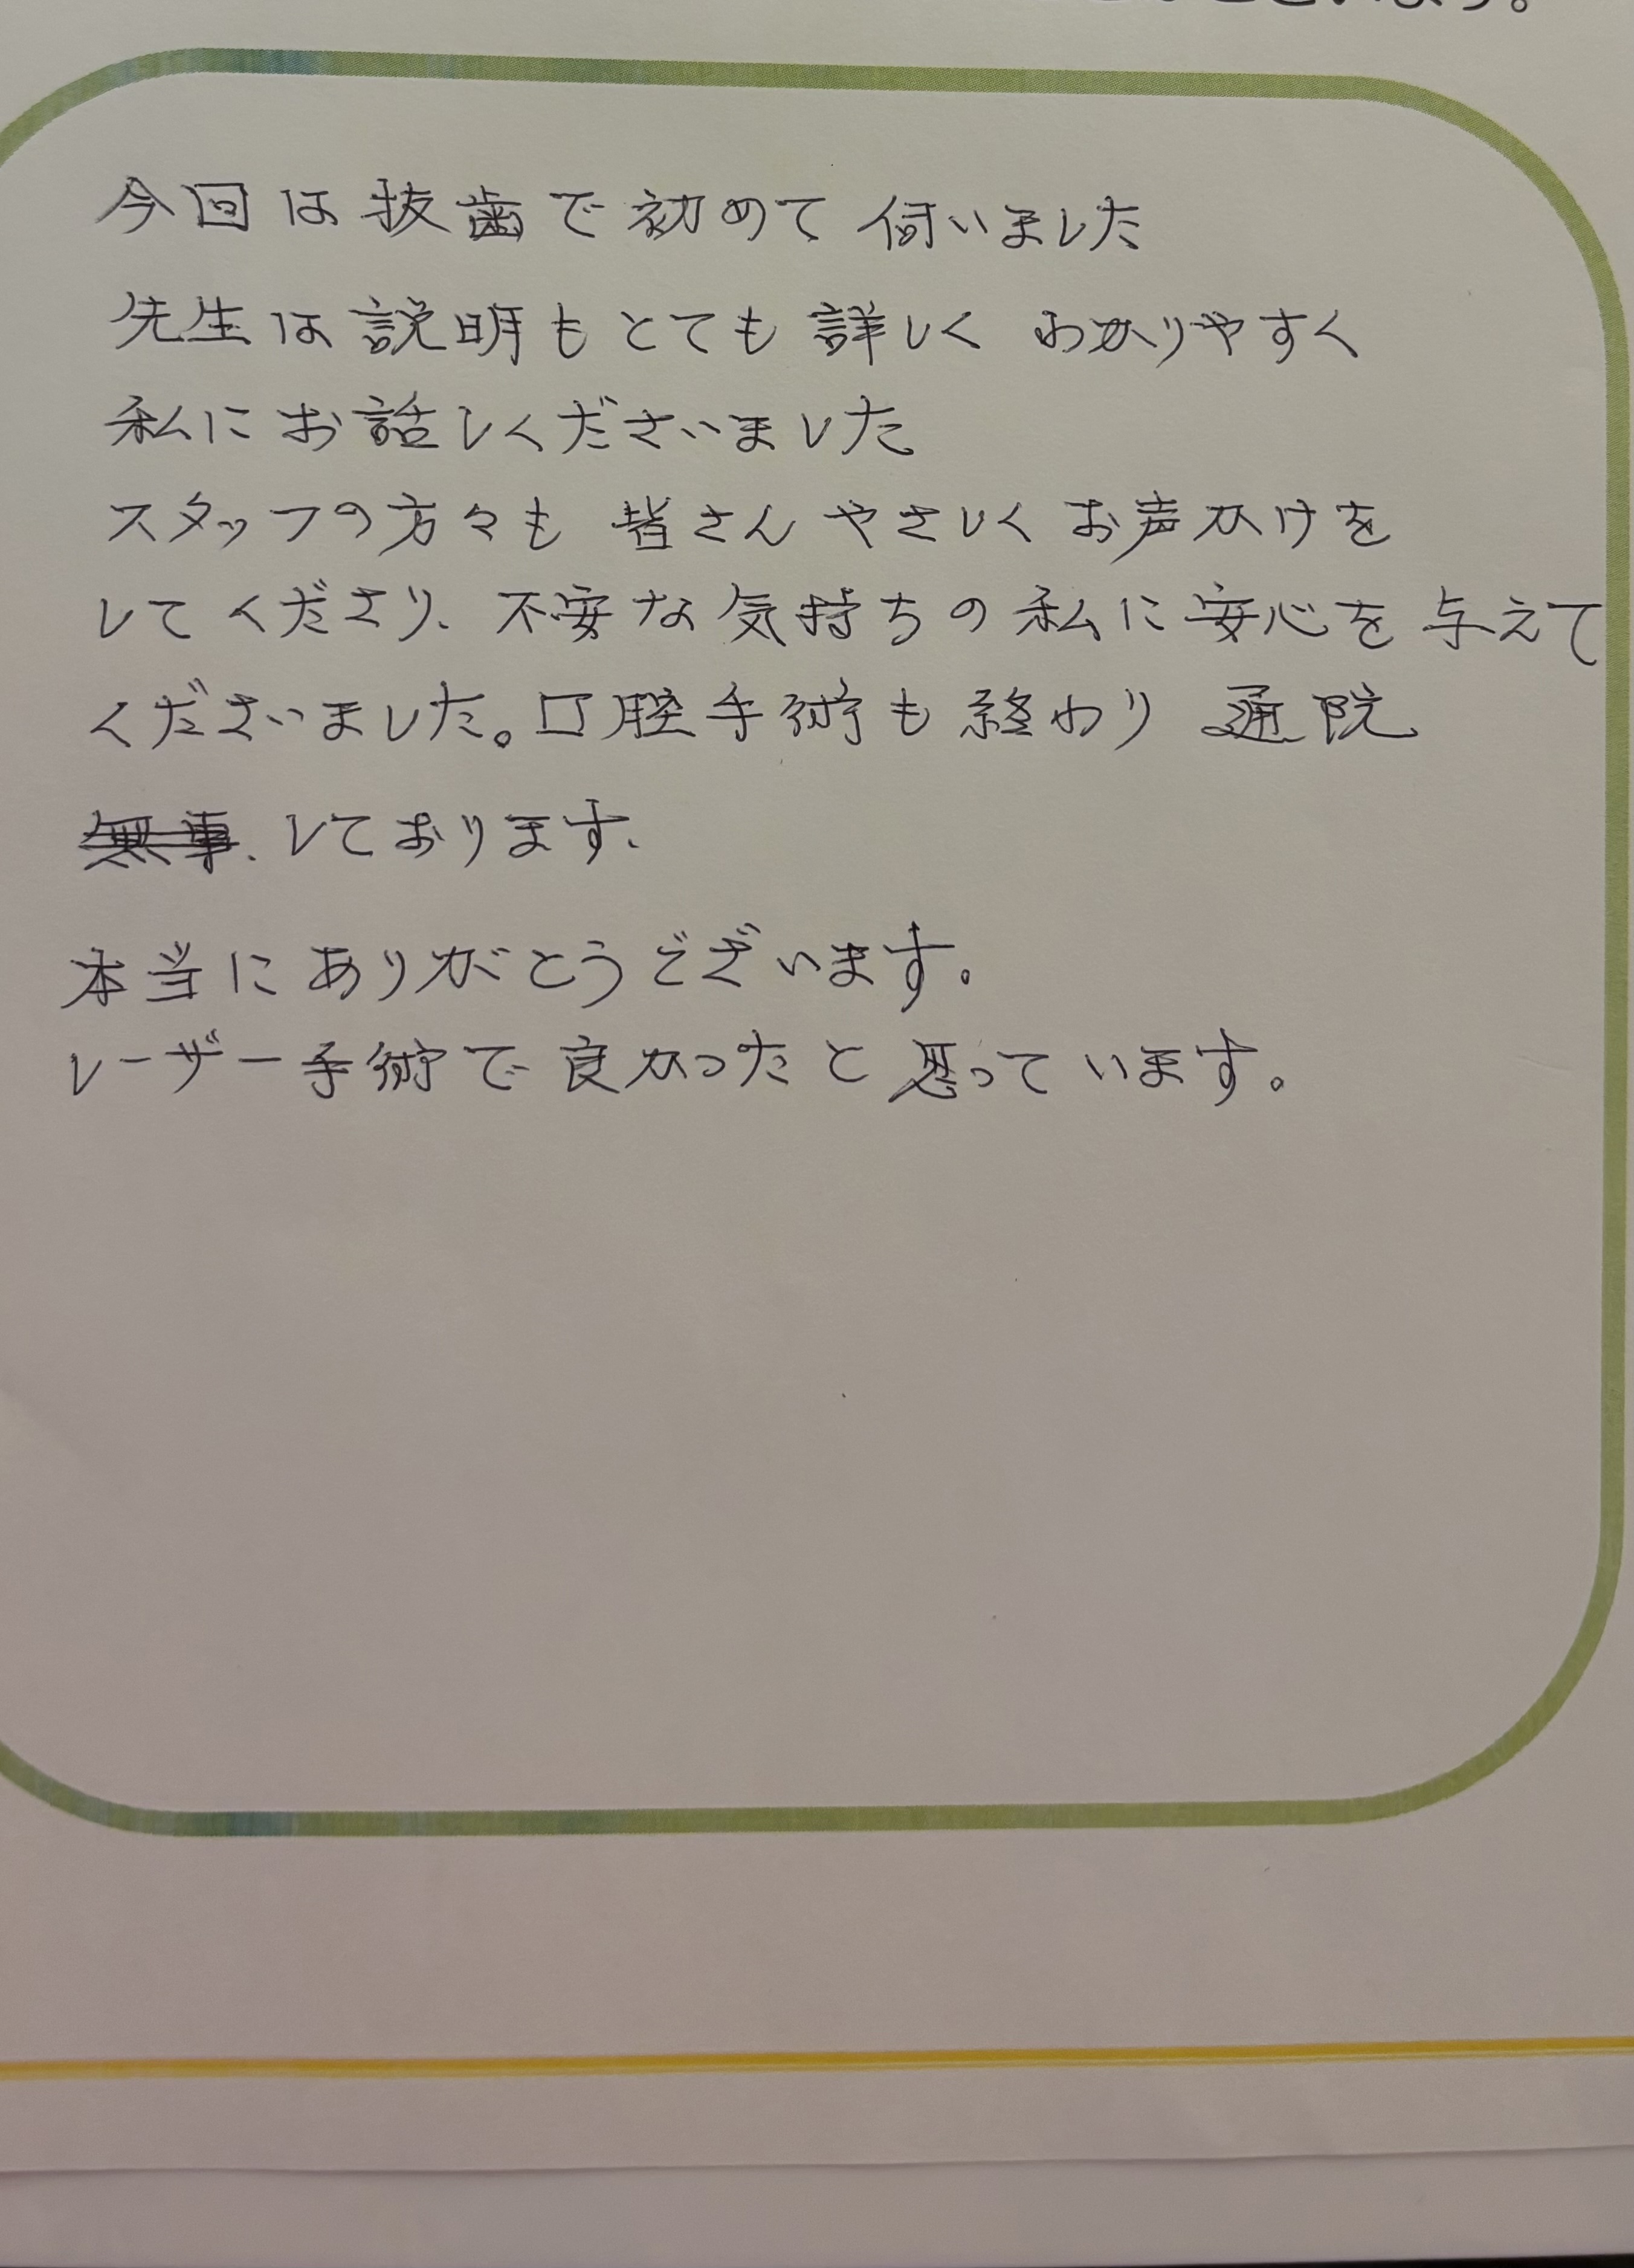 今回は抜歯で初めて伺いました
先生は説明もとても詳しくわかりやすく
私にお話しくださいました
スタッフの方々も皆さんやさしくお声かけを
してくださり、不安な気持ちの私に安心を与えて
くださいました。口腔手術も終わり通院
無事、しております、
本当にありがとうございます。
レーザー手術で良かったと思っています。